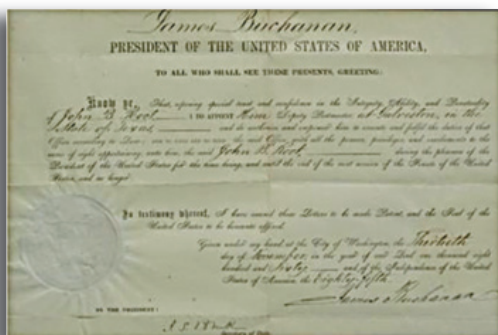 James Buchanan,
PRESIDENT OF THE UNITED STATES OF AMERICA,
TO ALL WHO SHALL SEE THESE PRESENTS, GREETING:
Know ye, That, reposing special trust and confidence in the Integrity, Ability, and Punctuality
of John B. Root I DO APPOINT Him Deputy Postmaster at Galveston, in the
State of Texas and do authorize and empower him to execute and fulfil the duties of that
Office according to Law; AND TO HAVE AND TO HOLD the said Office, with all the powers, privileges, and emoluments to the
same of right appertaining, unto him, the said John B. Root during the pleasure of the
President of the United States for the time being, and until the end of the next session of the Senate of the United
States, and no longer.
In testimony whereof, I have caused these Letters to be made Patent, and the Seal of the
United States to be hereunto affixed.
Given under my hand at the City of Washington, the Thirtieth
day of in the year of our Lord one thousand eight
hundred and Sixty and of the Independence of the United
States of America, the Eighty-fifth.
James Buchanan
BY THE PRESIDENT:
Secretary of State.